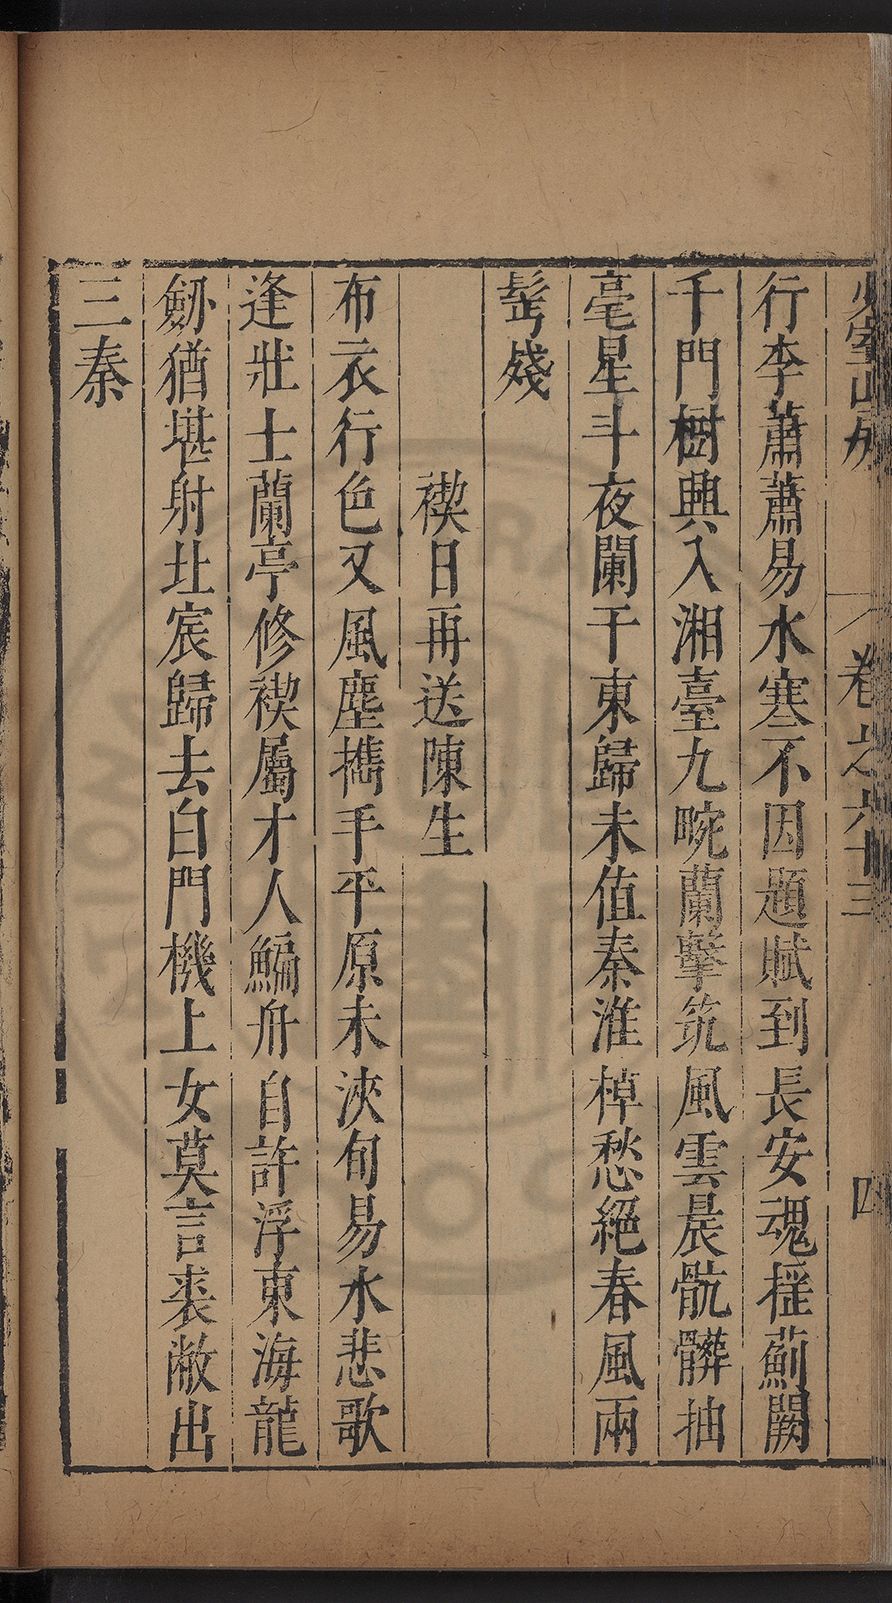 少室山房 卷之六十三 四
行李蕭蕭易水寒不因題賦到長安魂摇薊闕
千門樹興入湘臺九畹蘭擊筑風雲晨骯髒抽
毫星斗夜闌干東歸未值秦淮棹愁絕春風兩
髩殘
禊日再送陳生
布衣行色又風塵攜手平原未浹旬易水悲歌
逢壯士蘭亭修禊屬才人鯿舟自許浮東海龍
劒猶堪射北宸歸去白門機上女莫言裘敝出
三秦